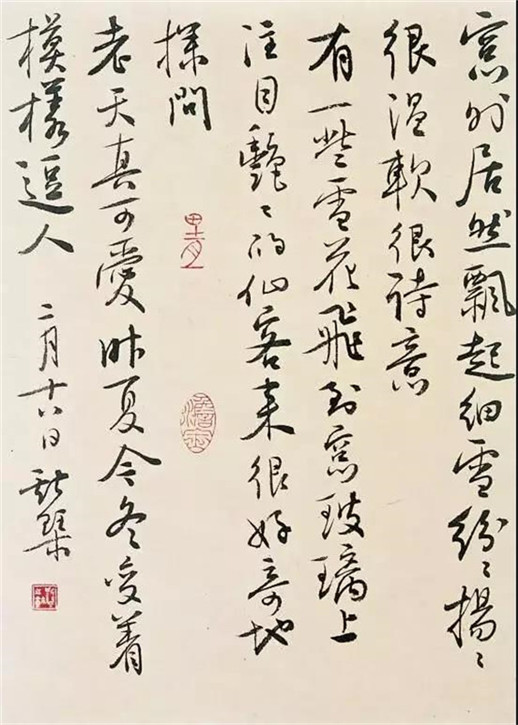 窓外居然飄起細雪紛々揚々
很温軟很詩意
有一些雪花飛到窓玻璃上
注目艷々的仙客来很好奇地
探問
老天真可愛昨夏今冬変着
模樣逗人 二月十八日